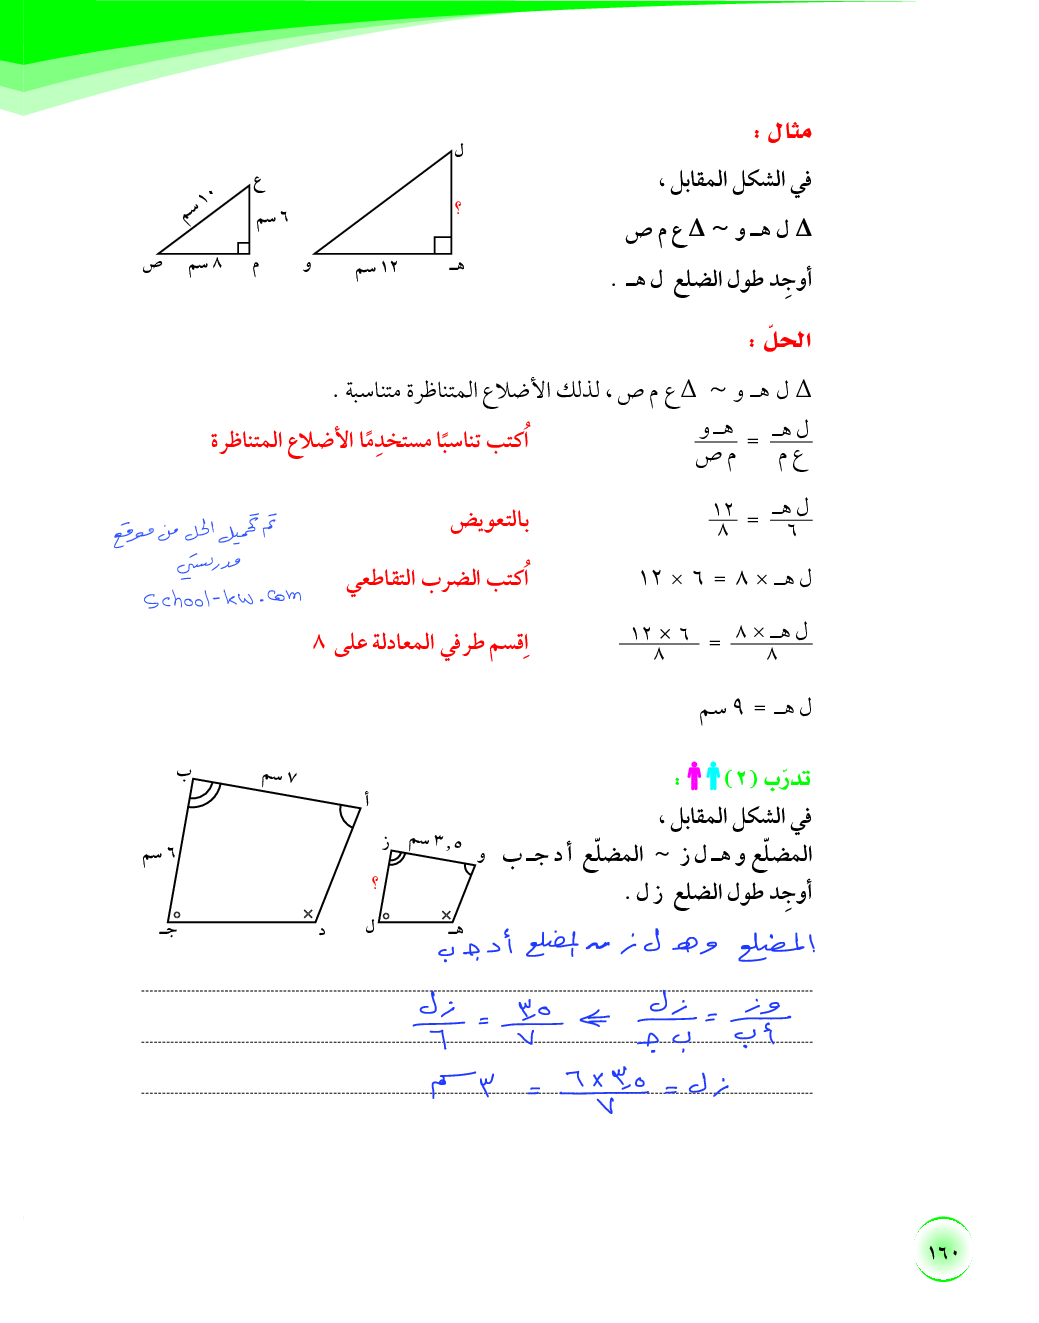 مثال :
في الشكل المقابل ،
Δ ل هـ و ~ Δ ع م ص
أوجِد طول الضلع ل هـ .
ل
؟
هـ
١٢ سم
و
ع
١٠ سم
٦ سم
م
٨ سم
ص
الحلّ :
Δ ل هـ و ~ Δ ع م ص ، لذلك الأضلاع المتناظرة متناسبة .
ل هـ / ع م = هـ و / م ص أُكتب تناسبًا مستخدِمًا الأضلاع المتناظرة
ل هـ / ٦ = ١٢ / ٨ بالتعويض
ل هـ × ٨ = ٦ × ١٢ أُكتب الضرب التقاطعي
ل هـ × ٨ / ٨ = ٦ × ١٢ / ٨ اِقسم طرفي المعادلة على ٨
ل هـ = ٩ سم
تم تكميل الحل من موقع
مدرستي
School-kw.com
تدرّب (٢) :
في الشكل المقابل ،
المضلّع و هـ ل ز ~ المضلّع أ د جـ ب
أوجِد طول الضلع ز ل .
ب
٧ سم
أ
٦ سم
جـ
د
ز
٣,٥ سم
و
؟
ل
هـ
المضلع و هـ ل ز ~ المضلع أ د جـ ب
و ز / أ ب = ز ل / ب جـ ⇐ ٣,٥ / ٧ = ز ل / ٦
ز ل = ٣,٥ × ٦ / ٧ = ٣ سم
١٦٠